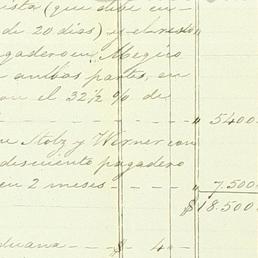 ista (que debe en-
de 20 dias) y el resto
gadero en Megico
ambas partes, en
con el 32½ % de
" 5400
Stolz y Werner con
descuento pagadero
en 2 meses - - - - " 7.500
$18.500
duana - - - $ 4 -